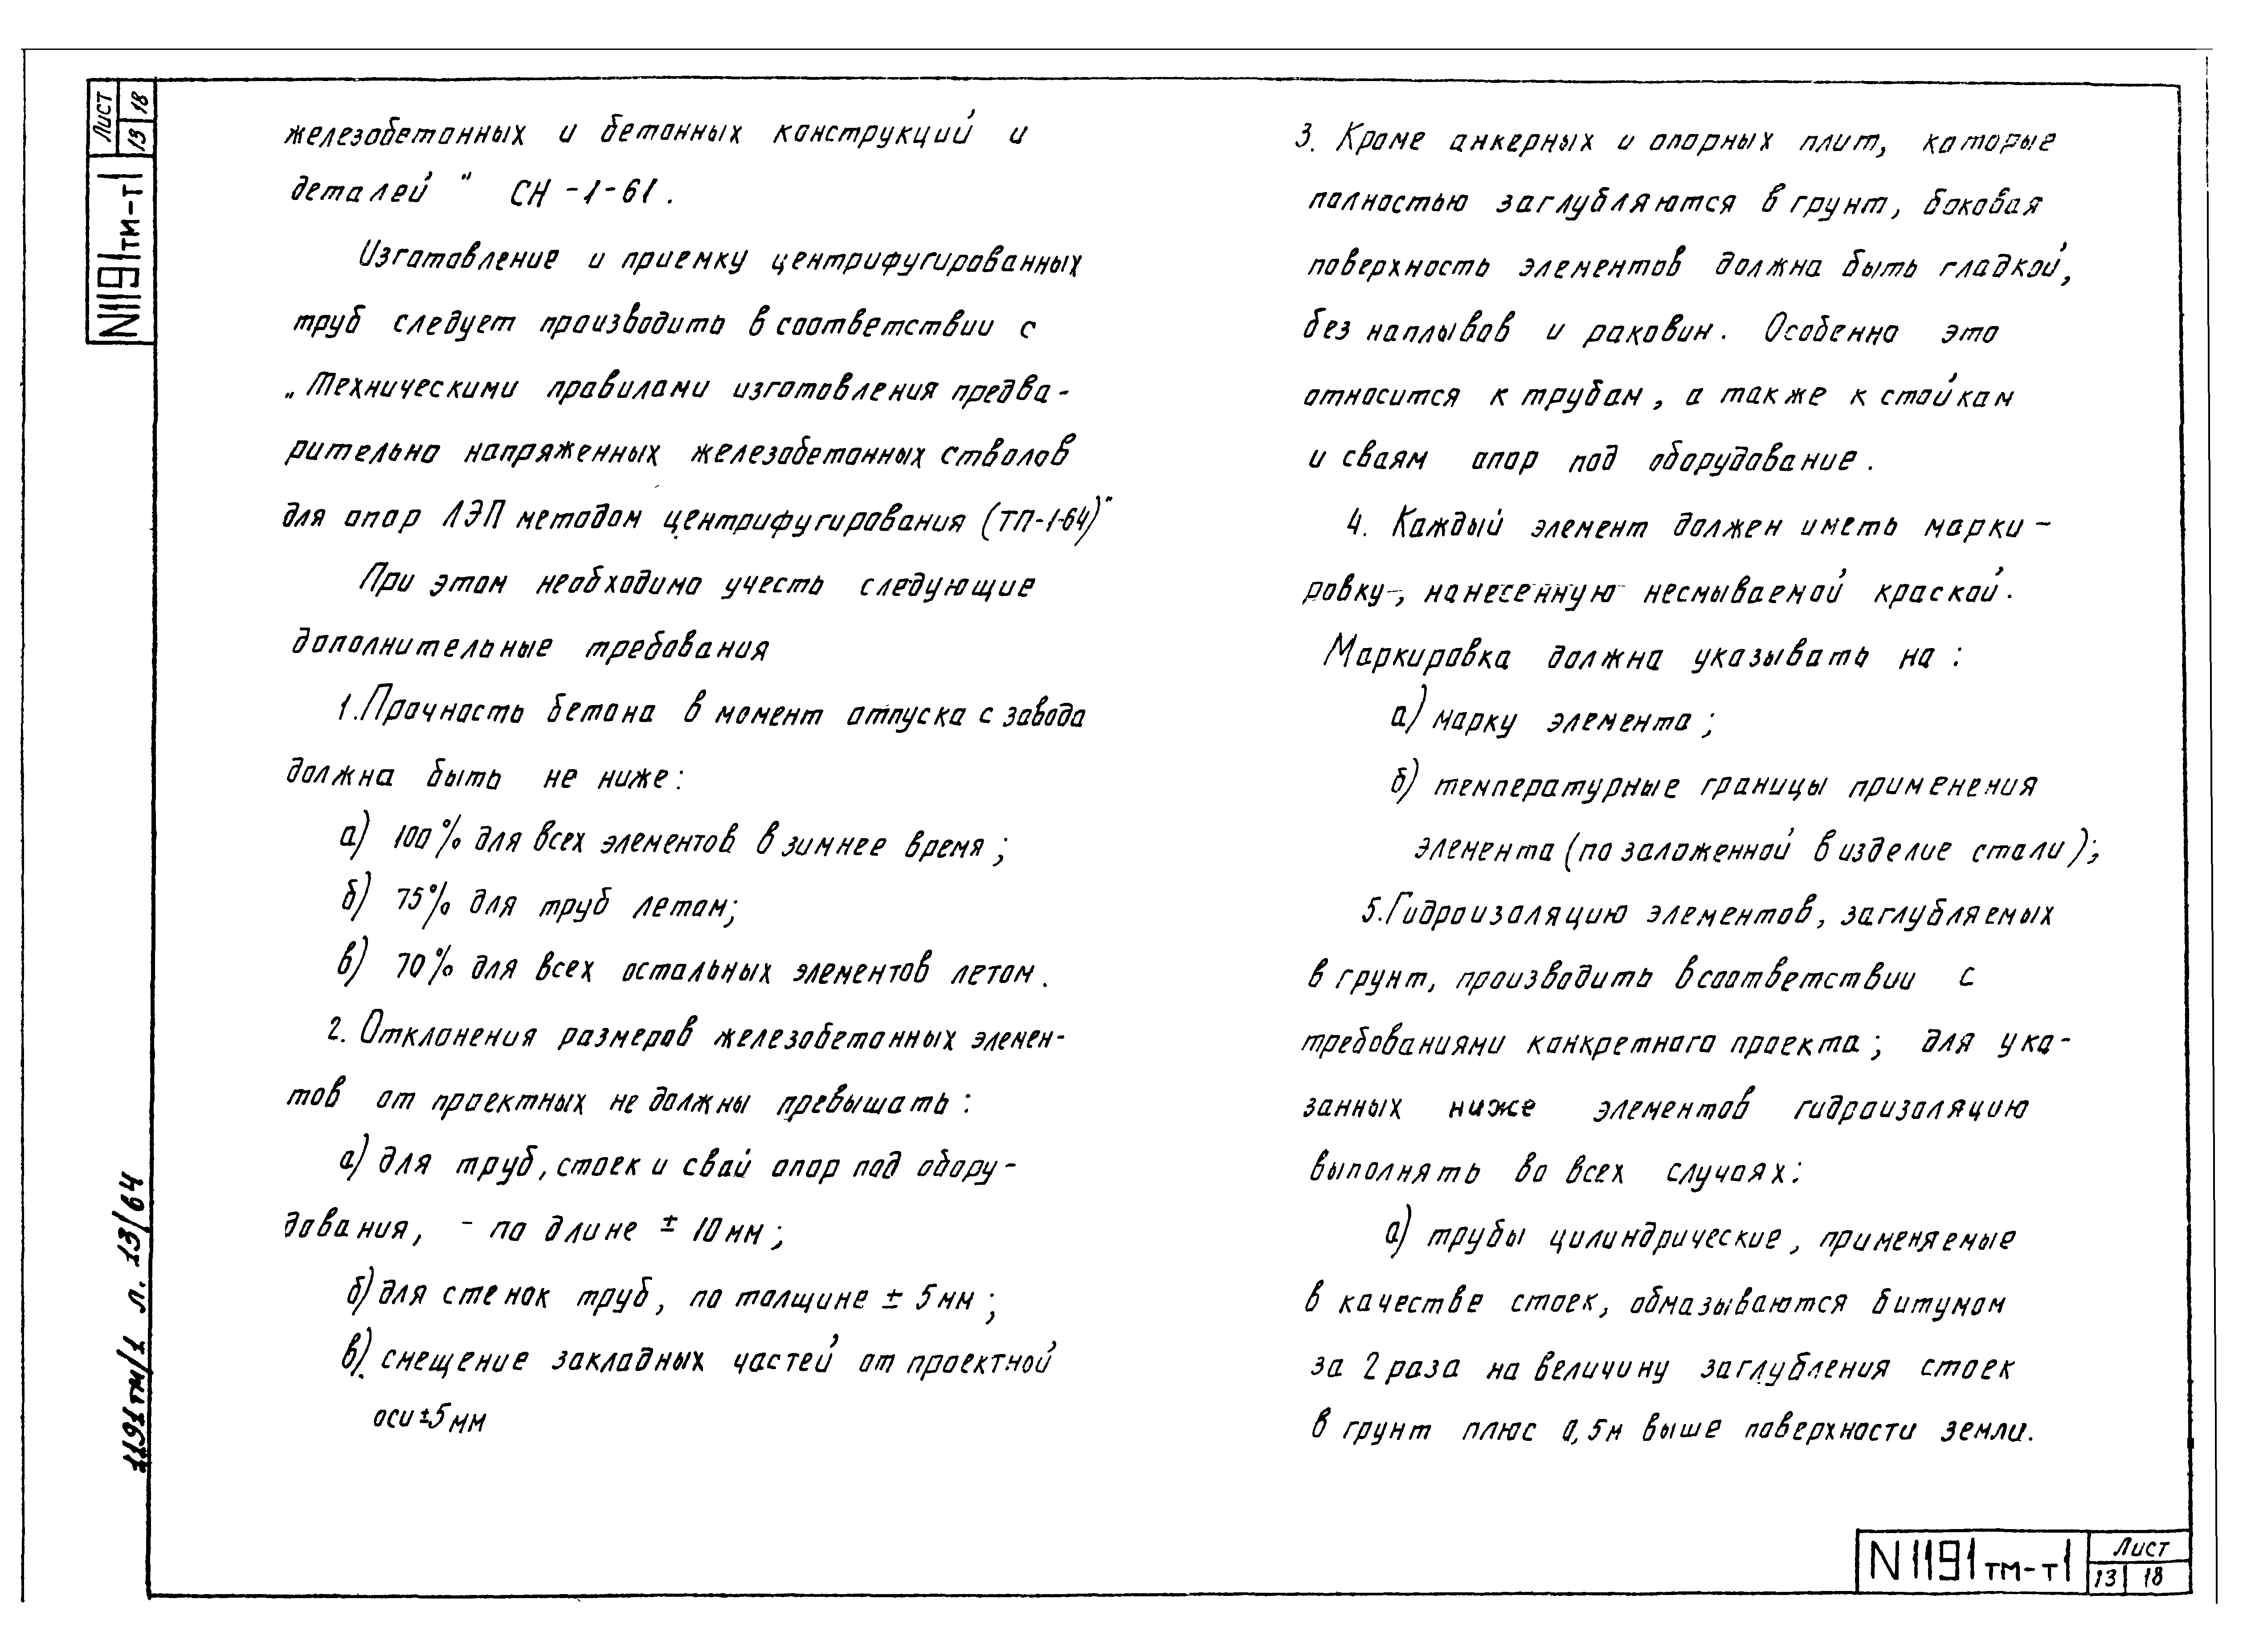 Лист
13 18
N1191тм-т1
железобетонных и бетонных конструкций и
деталей" СН-1-61.
Изготовление и приемку центрифугированных
труб следует производить в соответствии с
„Техническими правилами изготовления предва-
рительно напряженных железобетонных стволов
для опор ЛЭП методом центрифугирования (ТП-1-64)"
При этом необходимо учесть следующие
дополнительные требования
1. Прочность бетона в момент отпуска с завода
должна быть не ниже:
а) 100% для всех элементов в зимнее время;
б) 75% для труб летом;
в) 70% для всех остальных элементов летом.
2. Отклонения размеров железобетонных элемен-
тов от проектных не должны превышать:
а) для труб, стоек и свай опор под обору-
дования, - по длине ± 10мм;
б) для стенок труб, по толщине ± 5мм;
в) смещение закладных частей от проектной
оси ±5мм
3. Кроме анкерных и опорных плит, которые
полностью заглубляются в грунт, боковая
поверхность элементов должна быть гладкой,
без наплывов и раковин. Особенно это
относится к трубам, а также к стойкам
и сваям опор под оборудование.
4. Каждый элемент должен иметь марки-
ровку-, нанесенную несмываемой краской.
Маркировка должна указывать на:
а) марку элемента;
б) температурные границы применения
элемента (по заложенной в изделие стали);
5. Гидроизоляцию элементов, заглубляемых
в грунт, производить в соответствии с
требованиями конкретного проекта; для ука-
занных ниже элементов гидроизоляцию
выполнять во всех случаях:
а) трубы цилиндрические, применяемые
в качестве стоек, обмазываются битумом
за 2 раза на величину заглубления стоек
в грунт плюс 0,5м выше поверхности земли.
1191тм/1 л. 13/64
N1191тм-т1
Лист
13 18